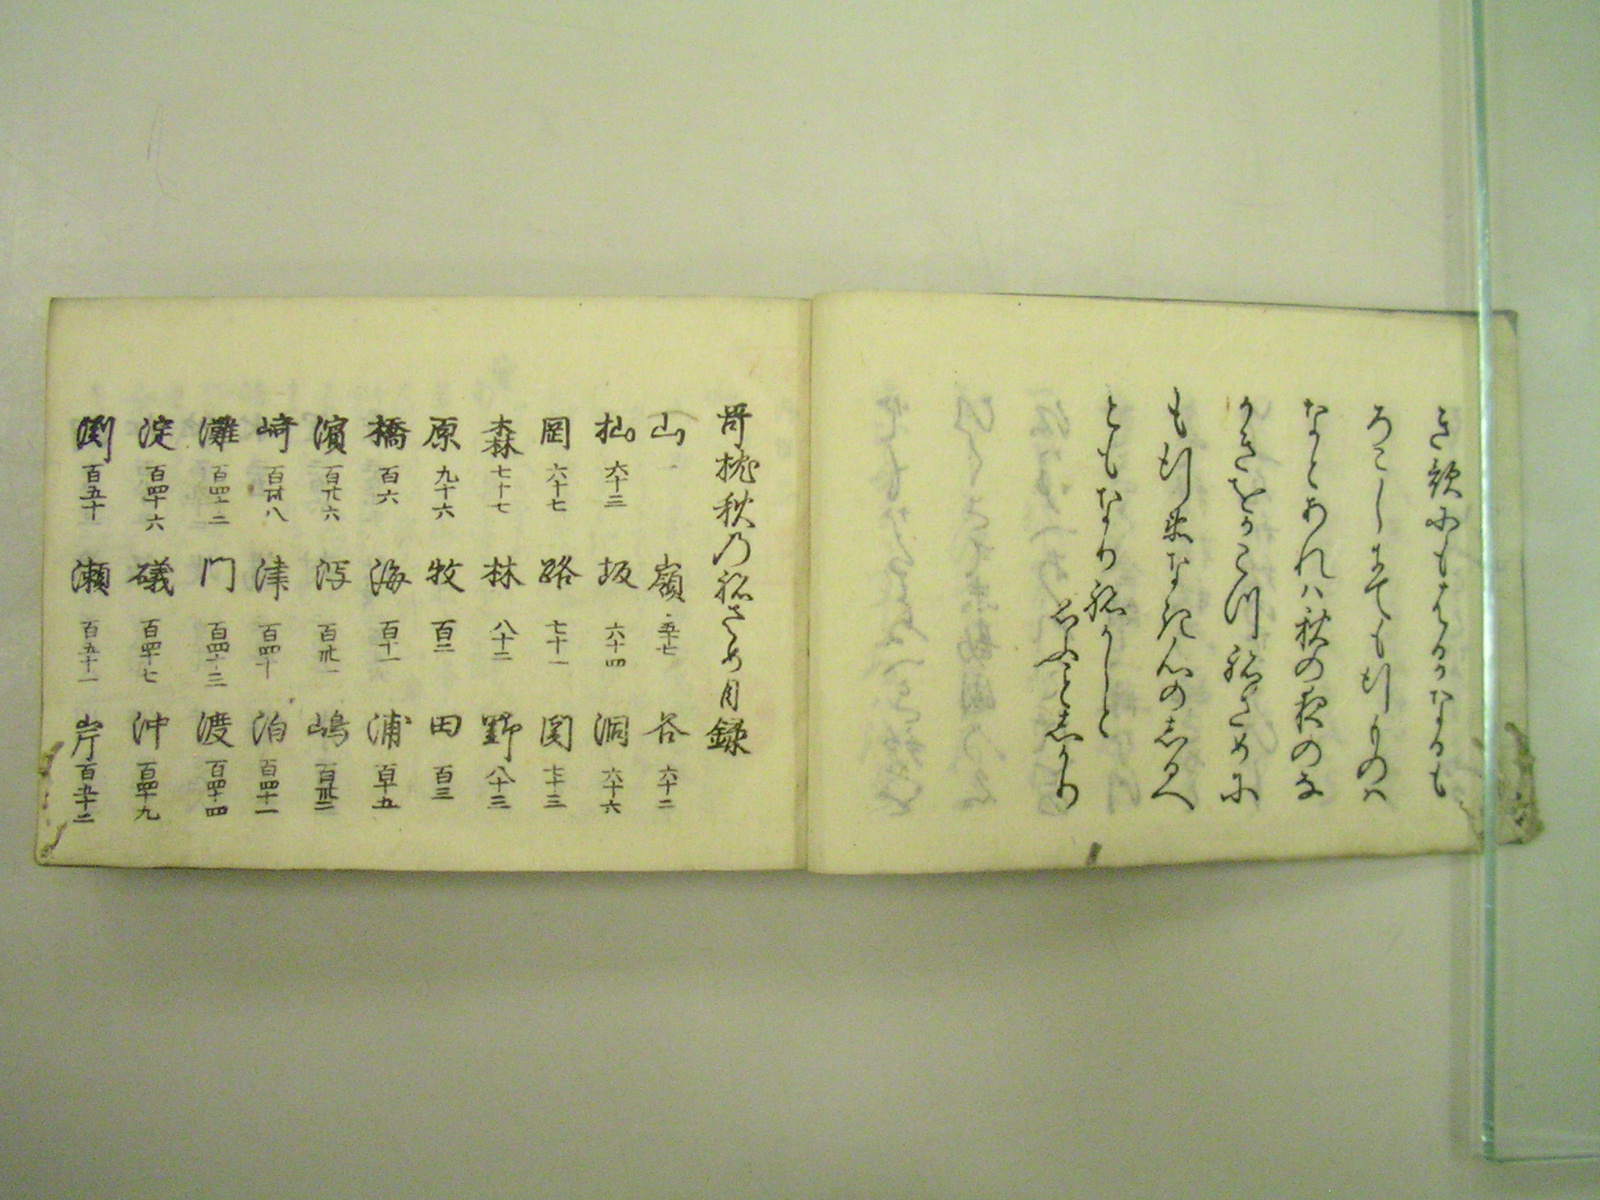 き歌にもはるかなるも
ろこしまても行ものハ
なとあれハ秋の夜のな
かきをかこつ祢さめに
も行来なれ人の志るへ
ともなり祢かしと
いふこと志かり
哥枕秋乃祢さめ目録
山 嶺 五十七 谷 六十二
杣 六十三 坂 六十四 洞 六十六
岡 六十七 路 七十一 関 七十三
森 七十七 林 八十二 野 八十三
原 九十六 牧 百二 田 百三
橋 百六 海 百十一 浦 百十五
濱 百廿六 潟 百卅一 嶋 百卅二
崎 百卅八 津 百四十 泊 百四十一
灘 百四十二 門 百四十三 渡 百四十四
淀 百四十六 磯 百四十七 沖 百四十九
渕 百五十 瀬 百五十一 岸 百五十二